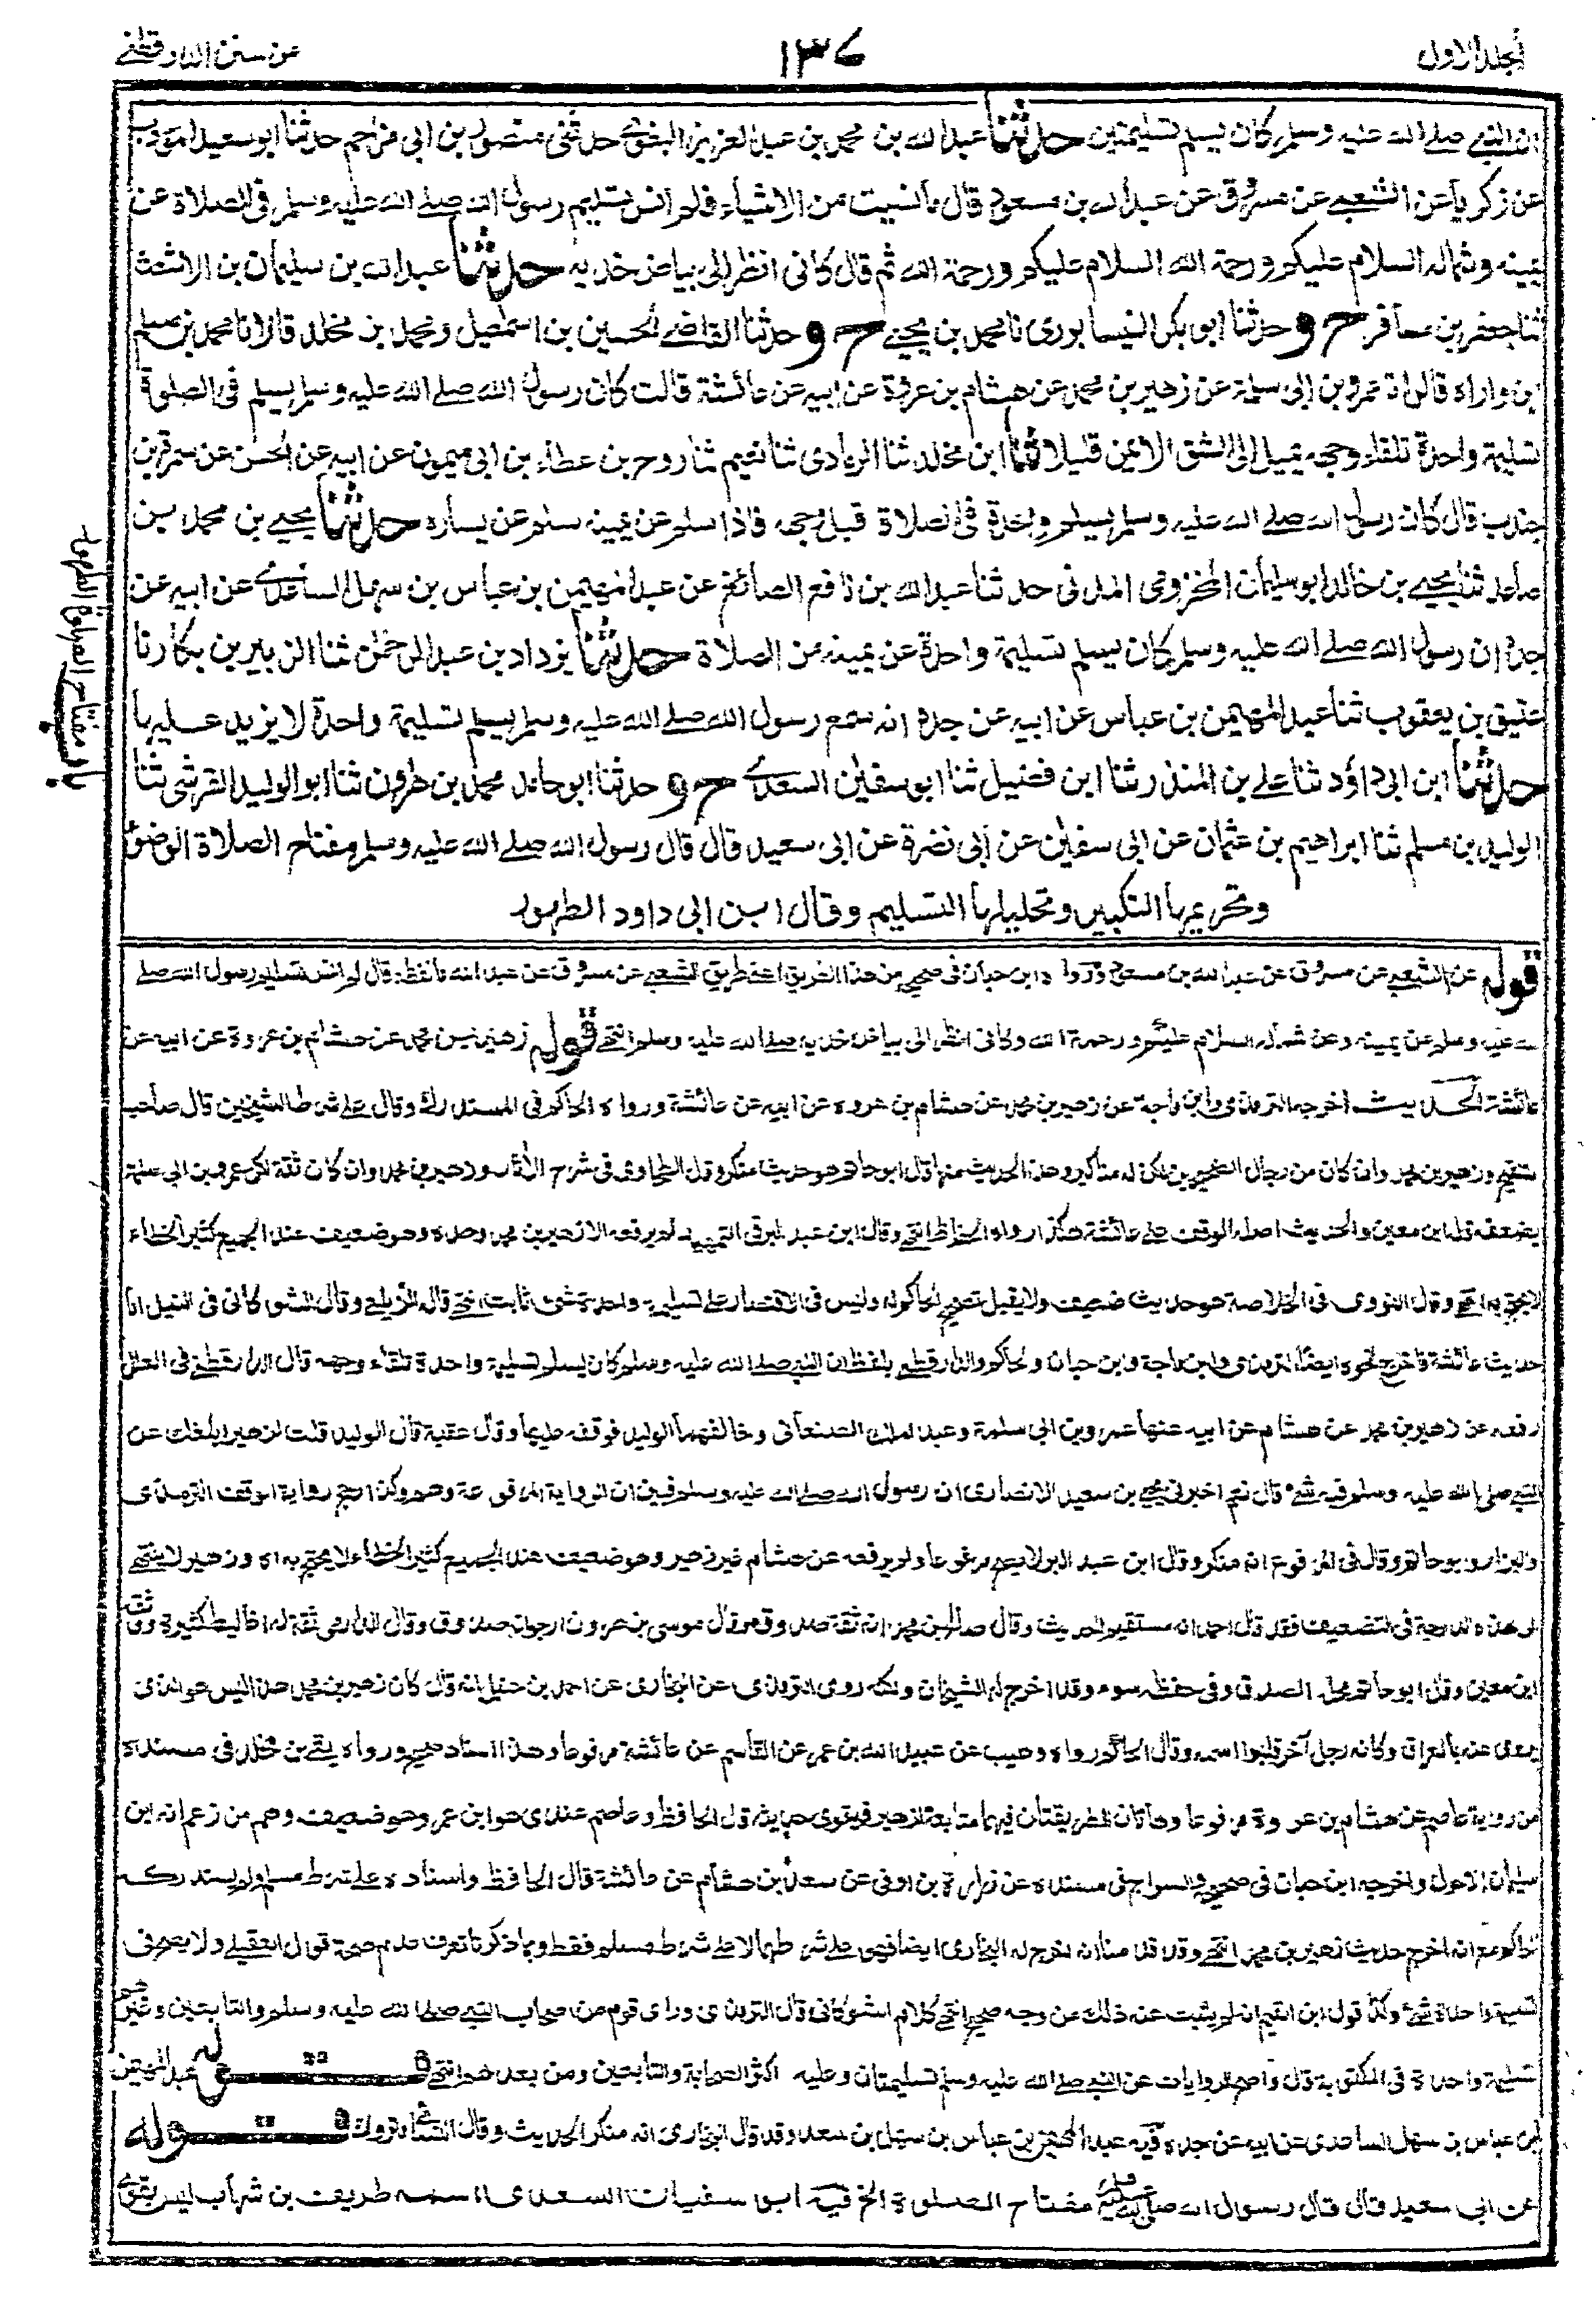 المجلد الاول
١٣٧
من سنن الدارقطني
ان النبي صلى الله عليه وسلم كان يسلم تسليمتين حدثنا عبد الله بن محمد بن عبد العزيز البغوي حدثني منصور بن ابي مزاحم حدثنا ابو سعيد المؤدب
عن زكريا عن الشعبي عن مسروق عن عبد الله بن مسعود قال ما نسيت من الاشياء فلم انس تسليم رسول الله صلى الله عليه وسلم في الصلاة عن
يمينه وشماله السلام عليكم ورحمة الله السلام عليكم ورحمة الله ثم قال كاني انظر الى بياض خديه حدثنا عبد الله بن سليمان بن الاشعث
ثنا جعفر بن مسافر ح و حدثنا ابو بكر النيسابوري نا محمد بن يحيى ح و حدثنا القاضي الحسين بن اسمعيل ومحمد بن مخلد قالا نا محمد بن مسلم
بن واراه قال نا عمرو بن ابي سلمة عن زهير بن محمد عن هشام بن عروة عن ابيه عن عائشة قالت كان رسول الله صلى الله عليه وسلم يسلم في الصلوة
تسليمة واحدة تلقاء وجهه يميل الى الشق الايمن قليلا ثنا ابن مخلد ثنا الرمادي ثنا نعيم ثنا روح بن عطاء بن ابي ميمونة عن ابيه عن الحسن عن سمرة بن
جندب قال كان رسول الله صلى الله عليه وسلم يسلم واحدة في الصلاة قبل وجهه فاذا سلم عن يمينه سلم عن يساره حدثنا يحيى بن محمد بن
صاعد ثنا يحيى بن خالد ابو سليمان المخزومي المدني حدثنا عبد الله بن نافع الصائغ عن عبد المهيمن بن عباس بن سهل الساعدي عن ابيه عن
جده ان رسول الله صلى الله عليه وسلم كان يسلم تسليمة واحدة عن يمينه من الصلاة حدثنا يزداد بن عبد الرحمن ثنا الزبير بن بكار نا
عتيق بن يعقوب ثنا عبد المهيمن بن عباس عن ابيه عن جده انه سمع رسول الله صلى الله عليه وسلم يسلم تسليمة واحدة لا يزيد عليها
باب مفتاح الصلوة الطهور
حدثنا ابن ابي داؤد ثنا علي بن المنذر ثنا ابن فضيل ثنا ابو سفين السعدي ح و حدثنا ابو حامد محمد بن هرون ثنا ابو الوليد القرشي ثنا
الوليد بن مسلم ثنا ابراهيم بن عثمان عن ابي سفين عن ابي نضرة عن ابي سعيد قال قال رسول الله صلى الله عليه وسلم مفتاح الصلاة الوضوء
وتحريمها التكبير وتحليلها التسليم وقال ابن ابي داود الطهور
قوله عن الشعبي عن مسروق عن عبد الله بن مسعود ورواه ابن حبان في صحيحه من هذا الطريق اعني طريق الشعبي عن مسروق عن عبد الله بلفظ قال لم انس تسليم رسول الله صلى
الله عليه وسلم عن يمينه وعن شماله السلام عليكم ورحمة الله وكاني انظر الى بياض خديه صلى الله عليه وسلم انتهى قوله زهير بن محمد عن هشام بن عروة عن ابيه عن
عائشة الحديث اخرجه الترمذي وابن ماجة عن زهير بن محمد عن هشام بن عروه عن ابيه عن عائشة ورواه الحاكم في المستدرك وقال على شرط الشيخين قال صاحب
التنقيح وزهير بن محمد وان كان من رجال الصحيحين لكن له مناكير وهذا الحديث منها قال ابو حاتم هو حديث منكر وقال الطحاوي في شرح الآثار وزهير بن محمد وان كان ثقة لكن عمرو بن ابي سلمة
يضعفه قاله ابن معين والحديث اصله الوقف على عائشة هكذا رواه الحفاظ انتهى وقال ابن عبد البر في التمهيد لم يرفعه الا زهير بن محمد وحده وهو ضعيف عند الجميع كثير الخطاء
لا يحتج به انتهى وقال النووي في الخلاصة هو حديث ضعيف ولا يقبل تصحيح الحاكم له وليس في الاقتصار على تسليمة واحدة شئ ثابت انتهى قاله الزيلعي وقال الشوكاني في النيل اما
حديث عائشة فاخرج نحوه ايضا الترمذي وابن ماجة وابن حبان والحاكم والدارقطني بلفظ ان النبي صلى الله عليه وسلم كان يسلم تسليمة واحدة تلقاء وجهه قال الدارقطني في العلل
رفعه عن زهير بن محمد عن هشام عن ابيه عنها عمرو بن ابي سلمة وعبد الملك الصنعاني وخالفهما الوليد فوقفه عليها وقال عقبة قال الوليد قلت لزهير ابلغك عن
النبي صلى الله عليه وسلم فيه شئ قال نعم اخبرني يحيى بن سعيد الانصاري ان رسول الله صلى الله عليه وسلم فبين ان الرواية المرفوعة وهم وكذا رجح رواية الوقف الترمذي
والبزار وابو حاتم وقال في المرفوع انه منكر وقال ابن عبد البر لا يصح مرفوعا ولم يرفعه عن هشام غير زهير وهو ضعيف عند الجميع كثير الخطاء لا يحتج به اه وزهير لا ينتهي
الى هذه الدرجة في التضعيف فقد قال احمد انه مستقيم الحديث وقال صالح بن محمد انه ثقة صدوق وقال موسى بن هرون ارجو انه صدوق وقال الدارمي ثقة له اغاليط كثيرة وثقه
ابن معين وقال ابو حاتم محله الصدق وفي حفظه سوء وقد اخرج له الشيخان ولكنه روى الترمذي عن البخاري عن احمد بن حنبل انه قال كان زهير بن محمد هذا ليس هو الذي
يروى عنه بالعراق وكانه رجل آخر قلبوا اسمه وقال الحاكم رواه وهيب عن عبيد الله بن عمر عن القاسم عن عائشة مرفوعا وهذا اسناد صحيح ورواه بقي بن مخلد في مسنده
من رواية عاصم عن هشام بن عروة مرفوعا وهاتان الطريقتان فيهما متابعة لزهير فيقوى حديثه قال الحافظ وعاصم عندي هو ابن عمر وهو ضعيف وهم من زعم انه ابن
سليمان الاحول واخرجه ابن حبان في صحيحه والسراج في مسنده عن زرارة بن اوفى عن سعد بن هشام عن عائشة قال الحافظ واسناده على شرط مسلم ولم يستدركه
الحاكم مع انه اخرج حديث زهير بن محمد انتهى وقد قدمنا انه اخرج له البخاري ايضا فهو على شرطهما لا على شرط مسلم فقط وبما ذكرنا تعرف عدم صحة قول العقيلي ولا يصح في
تسليمة واحدة شئ وكذا قول ابن القيم انه لم يثبت عنه ذلك من وجه صحيح انتهى كلام الشوكاني قال الترمذي ورأى قوم من اصحاب النبي صلى الله عليه وسلم والتابعين وغيرهم
تسليمة واحدة في المكتوبة قال واصح الروايات عن النبي صلى الله عليه وسلم تسليمتان وعليه اكثر الصحابة والتابعين ومن بعدهم انتهى قوله عبد المهيمن
بن عباس بن سهل الساعدي عن ابيه عن جده فيه عبد المهيمن بن عباس بن سهل بن سعد وقد قال البخاري انه منكر الحديث وقال النسائي متروك قوله
عن ابي سعيد قال قال رسول الله صلى الله عليه وسلم مفتاح الصلوة الخ فيه ابو سفيان السعدي اسمه طريف بن شهاب ليس بقوي